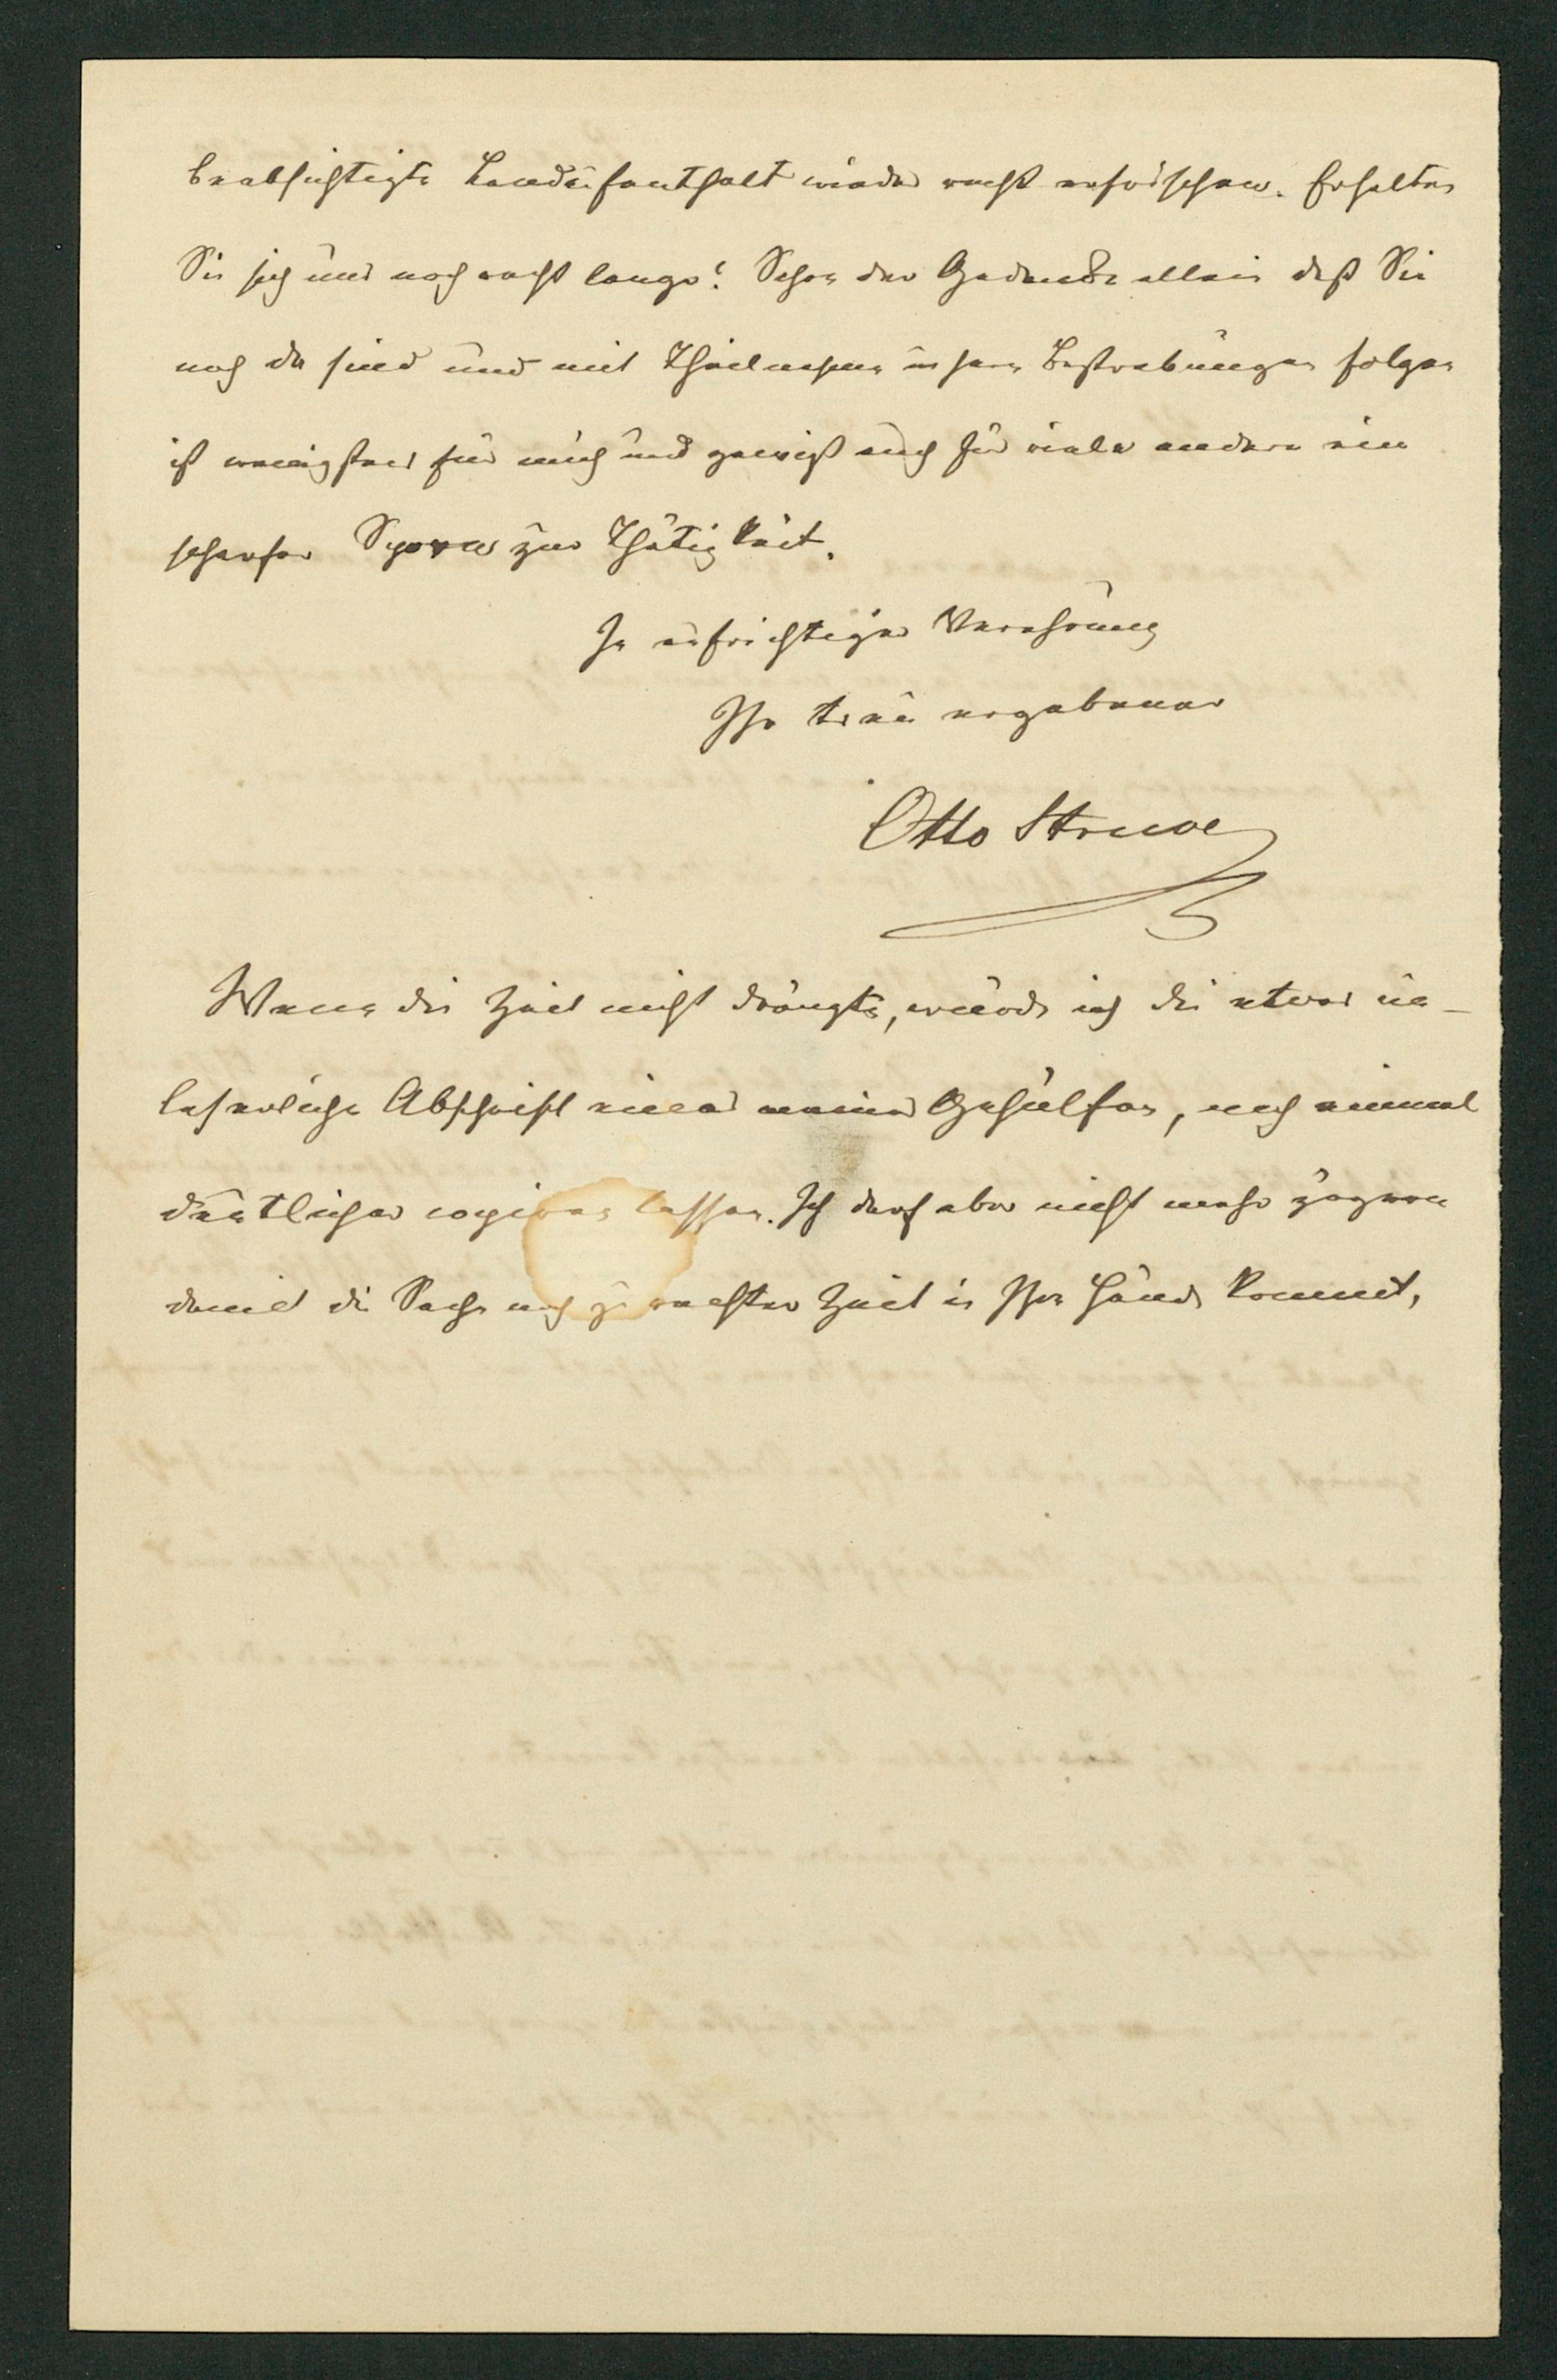 beabsichtigte Landaufenthalt wieder recht erfrischen. Erhalten
Sie sich uns noch recht lange! Schon der Gedanke allein daß Sie
noch da sind und mit Theilnahme unsern Bestrebungen folgen
ist wenigstens für mich und gewiß auch für viele andere ein
scharfer Sporn zur Thätigkeit.
In aufrichtiger Verehrung
Ihr treu ergebener
Otto Struve
Wenn die Zeit nicht drängte, würde ich die etwas un-
leserliche Abschrift eines meiner Gehülfen, noch einmal
deutlicher copiren lassen. Ich darf aber nicht mehr zögern
damit die Sache noch zu rechter Zeit in Ihre Hände kommt.